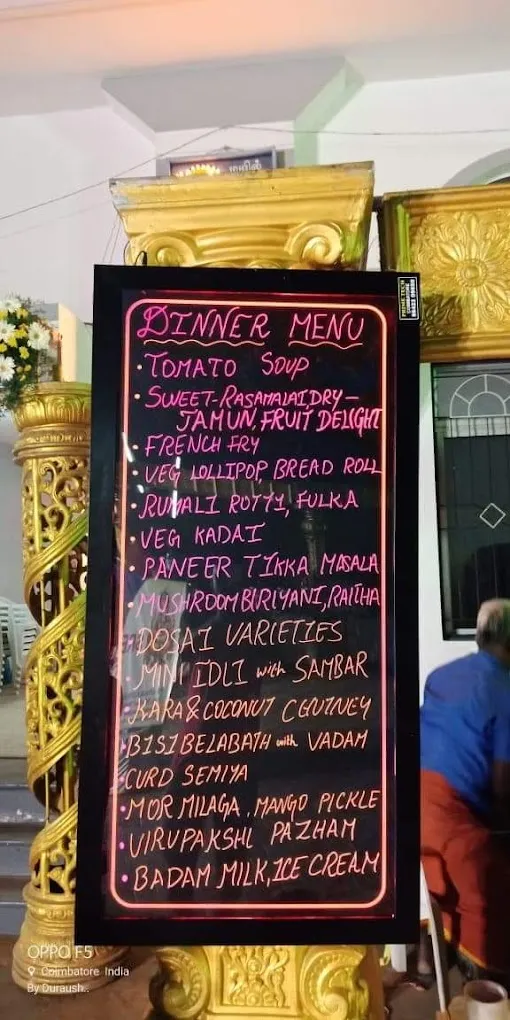 DINNER MENU
• TOMATO SOUP
• SWEET-RASAMALAI DRY-
JAMUN, FRUIT DELIGHT
• FRENCH FRY
• VEG LOLLIPOP, BREAD ROLL
• RUMALI ROTTY, FULKA
• VEG KADAI
• PANEER TIKKA MASALA
• MUSHROOM BIRIYANI, RAITHA
• DOSAI VARIETIES
• MINI IDLI with SAMBAR
• KARA & COCONUT CHUTNEY
• BISIBELABATH with VADAM
CURD SEMIYA
• MOR MILAGA, MANGO PICKLE
• VIRUPAKSHI PAZHAM
• BADAM MILK, ICE CREAM
OPPO F5
Coimbatore India
By Duraush..